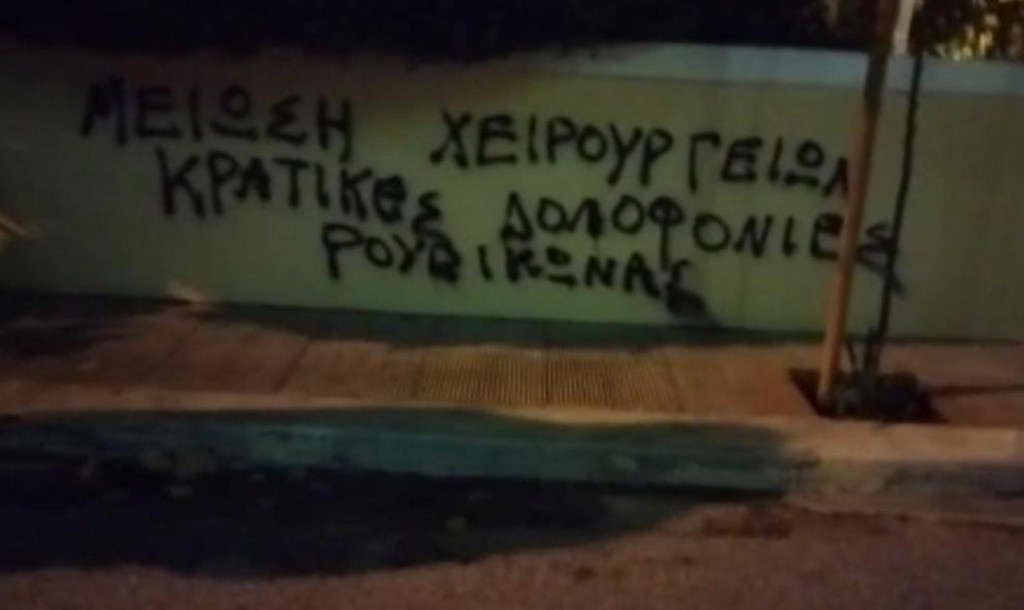 ΜΕΙΩΣΗ ΧΕΙΡΟΥΡΓΕΙΩΝ
ΚΡΑΤΙΚΕΣ ΔΟΛΟΦΟΝΙΕΣ
ΡΟΥΒΙΚΩΝΑΣ